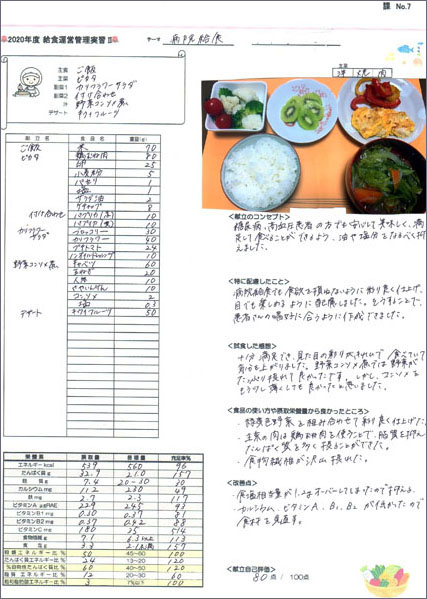 課 No.7
2020年度 給食運営管理実習Ⅱ
テーマ 病院給食
主食 ご飯
主菜 ピカタ
副菜1 カリフラワーサラダ
副菜2 付け合わせ
汁 野菜コンソメ煮
デザート キウイフルーツ
主菜
洋 焼 肉
献立名 食品名 重量(g)
ご飯 米 70
ピカタ 鶏むね肉 80
卵 25
小麦粉 5
パセリ 1
塩
サラダ油 2
ケチャップ 8
付け合わせ パプリカ(赤) 10
パプリカ(黄) 10
カリフラワーサラダ ブロッコリー 30
カリフラワー 40
プチトマト 24
ノンオイルドレッシング 10
野菜コンソメ煮 キャベツ 60
玉ねぎ 20
人参 10
さやいんげん 10
コンソメ 2
塩 0.3
デザート キウイフルーツ 50
<献立のコンセプト>
糖尿病、高血圧患者の方でも安心して美味しく、満
足して食べることができるよう、油や塩分をなるべく抑
えました。
<特に配慮したこと>
病院給食でも食欲を損わないように彩り良く仕上げ、
目でも楽しめるように配慮しました。そうすることで、
患者さんの嗜好に合うように作成できました。
<試食した感想>
十分満足でき、見た目の彩りがきれいで食べていて
気分も上がりました。野菜コンソメ煮では野菜が
たっぷり採れて良かったです。しかし、コンソメを
もう少し薄くしても良かったと思いました。
<食品の使い方や摂取栄養量から良かったところ>
・緑黄色野菜を組み合わせて彩り良く仕上げた。
・主菜の肉は鶏むね肉を使うことで、脂質を抑え
たんぱく質を多く採ることができた。
・食物繊維が沢山採れた。
<改善点>
・食塩相当量が1.2gオーバーしてしまったので抑える。
・カルシウム、ビタミンA、B1、B2が不足かったので
食材を見直す。
<献立自己評価>
80点 / 100点
栄養素 摂取量 目標量 充足率%
エネルギー kcal 539 560 96
たんぱく質 g 32.9 21.0 157
脂質 g 7.4 20~30
カルシウム mg 112 230 49
鉄 mg 2.7 2.3 117
ビタミンA μgRAE 229 245 93
ビタミンB1 mg 0.30 0.37 81
ビタミンB2 mg 0.37 0.42 88
ビタミンC mg 180 35 514
食物繊維 g 7.1 6.3以上 113
食塩 g 3.3 2.1未満 157
穀類エネルギー比% 50 45~60 100
たんぱく質エネルギー比% 24 13~20 120
動物性たんぱく質比% 60 40~50 120
脂質エネルギー比% 12 20~30 60
飽和脂肪酸エネルギー比% 3 7%以下 100